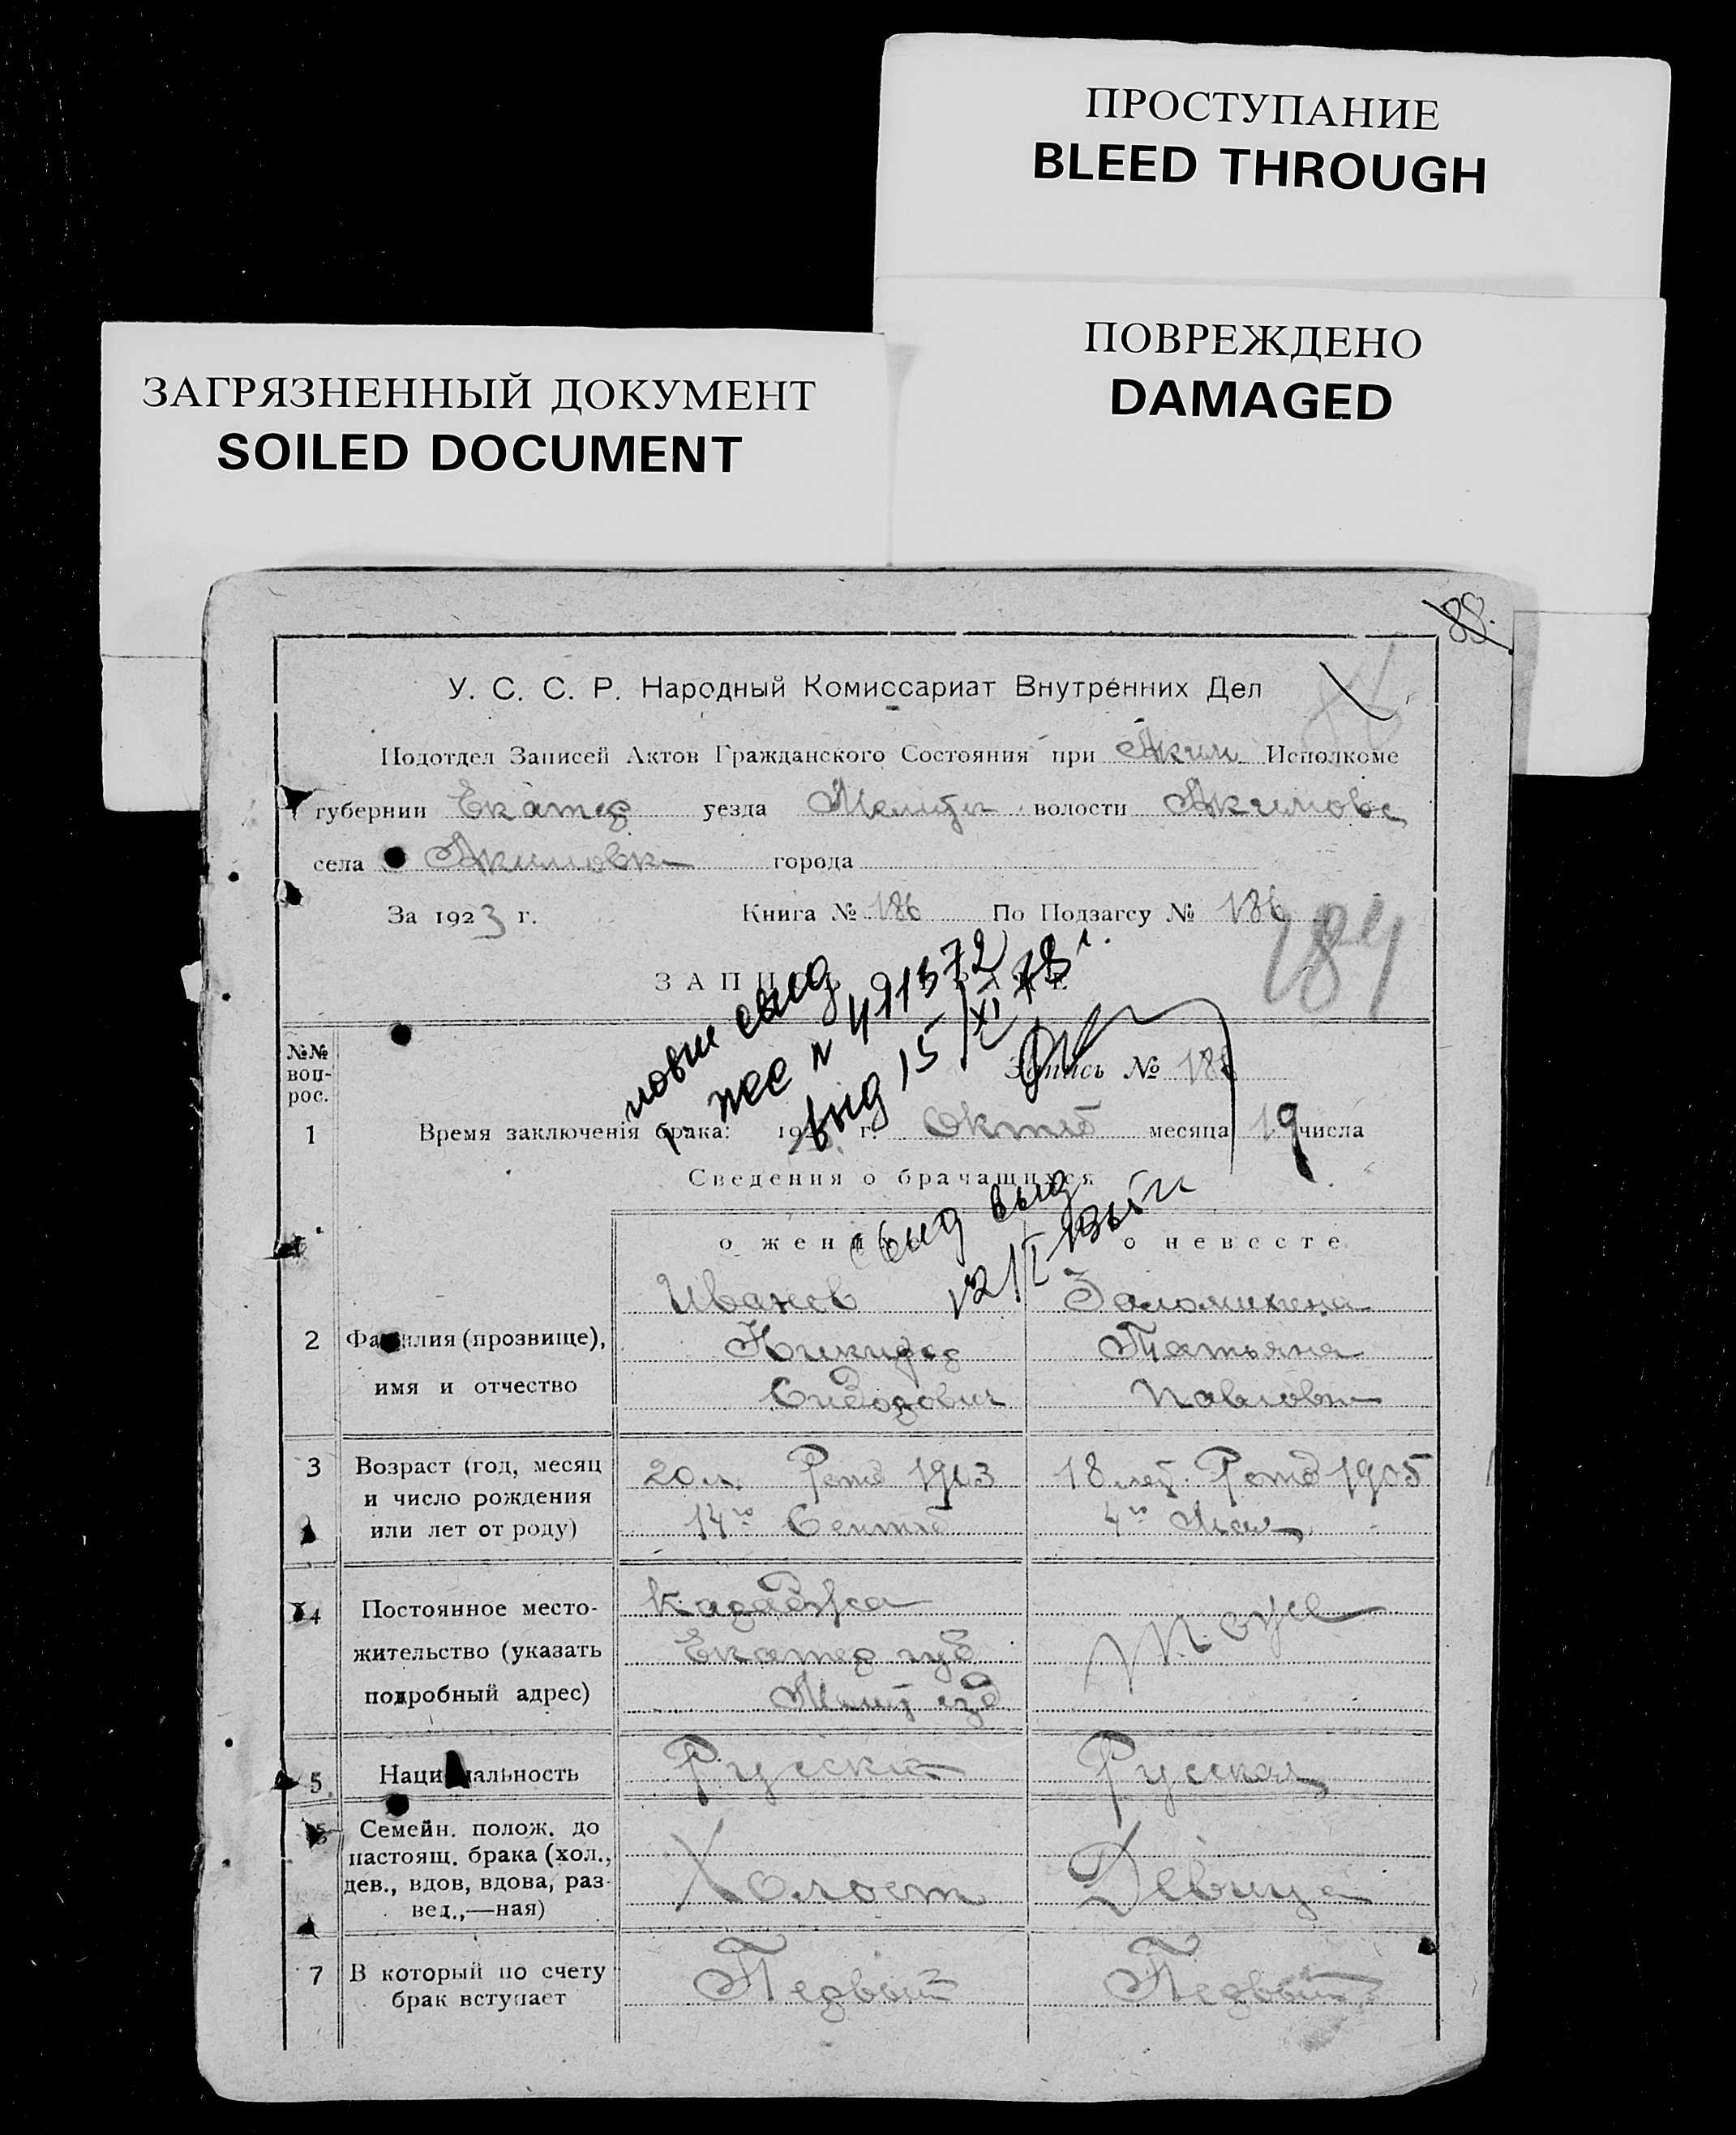 ПРОСТУПАНИЕ
BLEED THROUGH
ПОВРЕЖДЕНО
DAMAGED
ЗАГРЯЗНЕННЫЙ ДОКУМЕНТ
SOILED DOCUMENT
88.
У. С. С. Р. Народный Комиссариат Внутренних Дел
Подотдел Записей Актов Гражданского Состояния при Аким Исполкоме
губернии Екатер уезда Мелит волости Акимовс
села Акимовк города
За 1923 г. Книга № 186 По Подзагсу № 186
184
ЗАПИСЬ О БРАКЕ
повт свид
жс № 491372
выд 15/XI 78 г.
№№ вопрос.
Запись № 186
1 Время заключенія брака: 1923 г. Октяб месяца 19 числа
Сведения о брачащихся
свид выд
12/I
о женихе о невесте
2 Фамилия (прозвище),
имя и отчество
Иванов
Никифор
Сидорович
Татьяна
Павловн
3 Возраст (год, месяц
и число рождения
или лет от роду)
20 л. Ротд 1903
14го Сентяб
18 лет Ротд 1905
4го Мая
4 Постоянное место-
жительство (указать
подробный адрес)
Екатер губ
Мелит уезд
Тоже
5 Национальность Русский Русская
6 Семейн. полож. до
настоящ. брака (хол.,
дев., вдов, вдова, раз-
вед.,—ная)
Холост Девица
7 В который по счету
брак вступает
Первый Первый